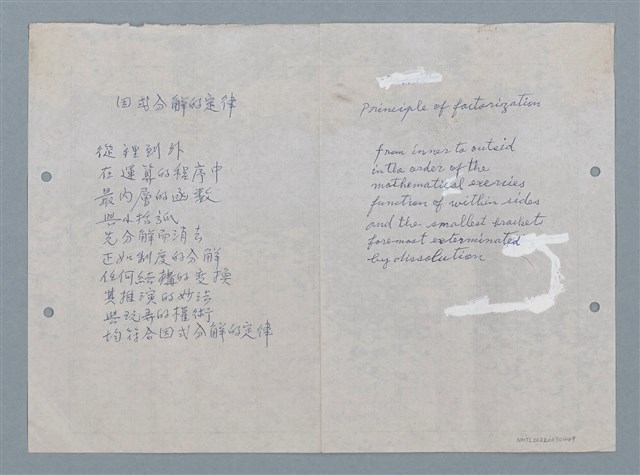 因式分解的定律
從裡到外
在運算的程序中
最內層的函数
與小括弧
先分解而消去
正如制度的分解
任何結構的変換
其推演的妙法
與玩弄的權術
均符合因式分解的定律
Principle of factorization
from inner to outsid
in the order of the
mathematical exercies
function of within sides
and the smallest brackets
foremost exterminated
by dissolution